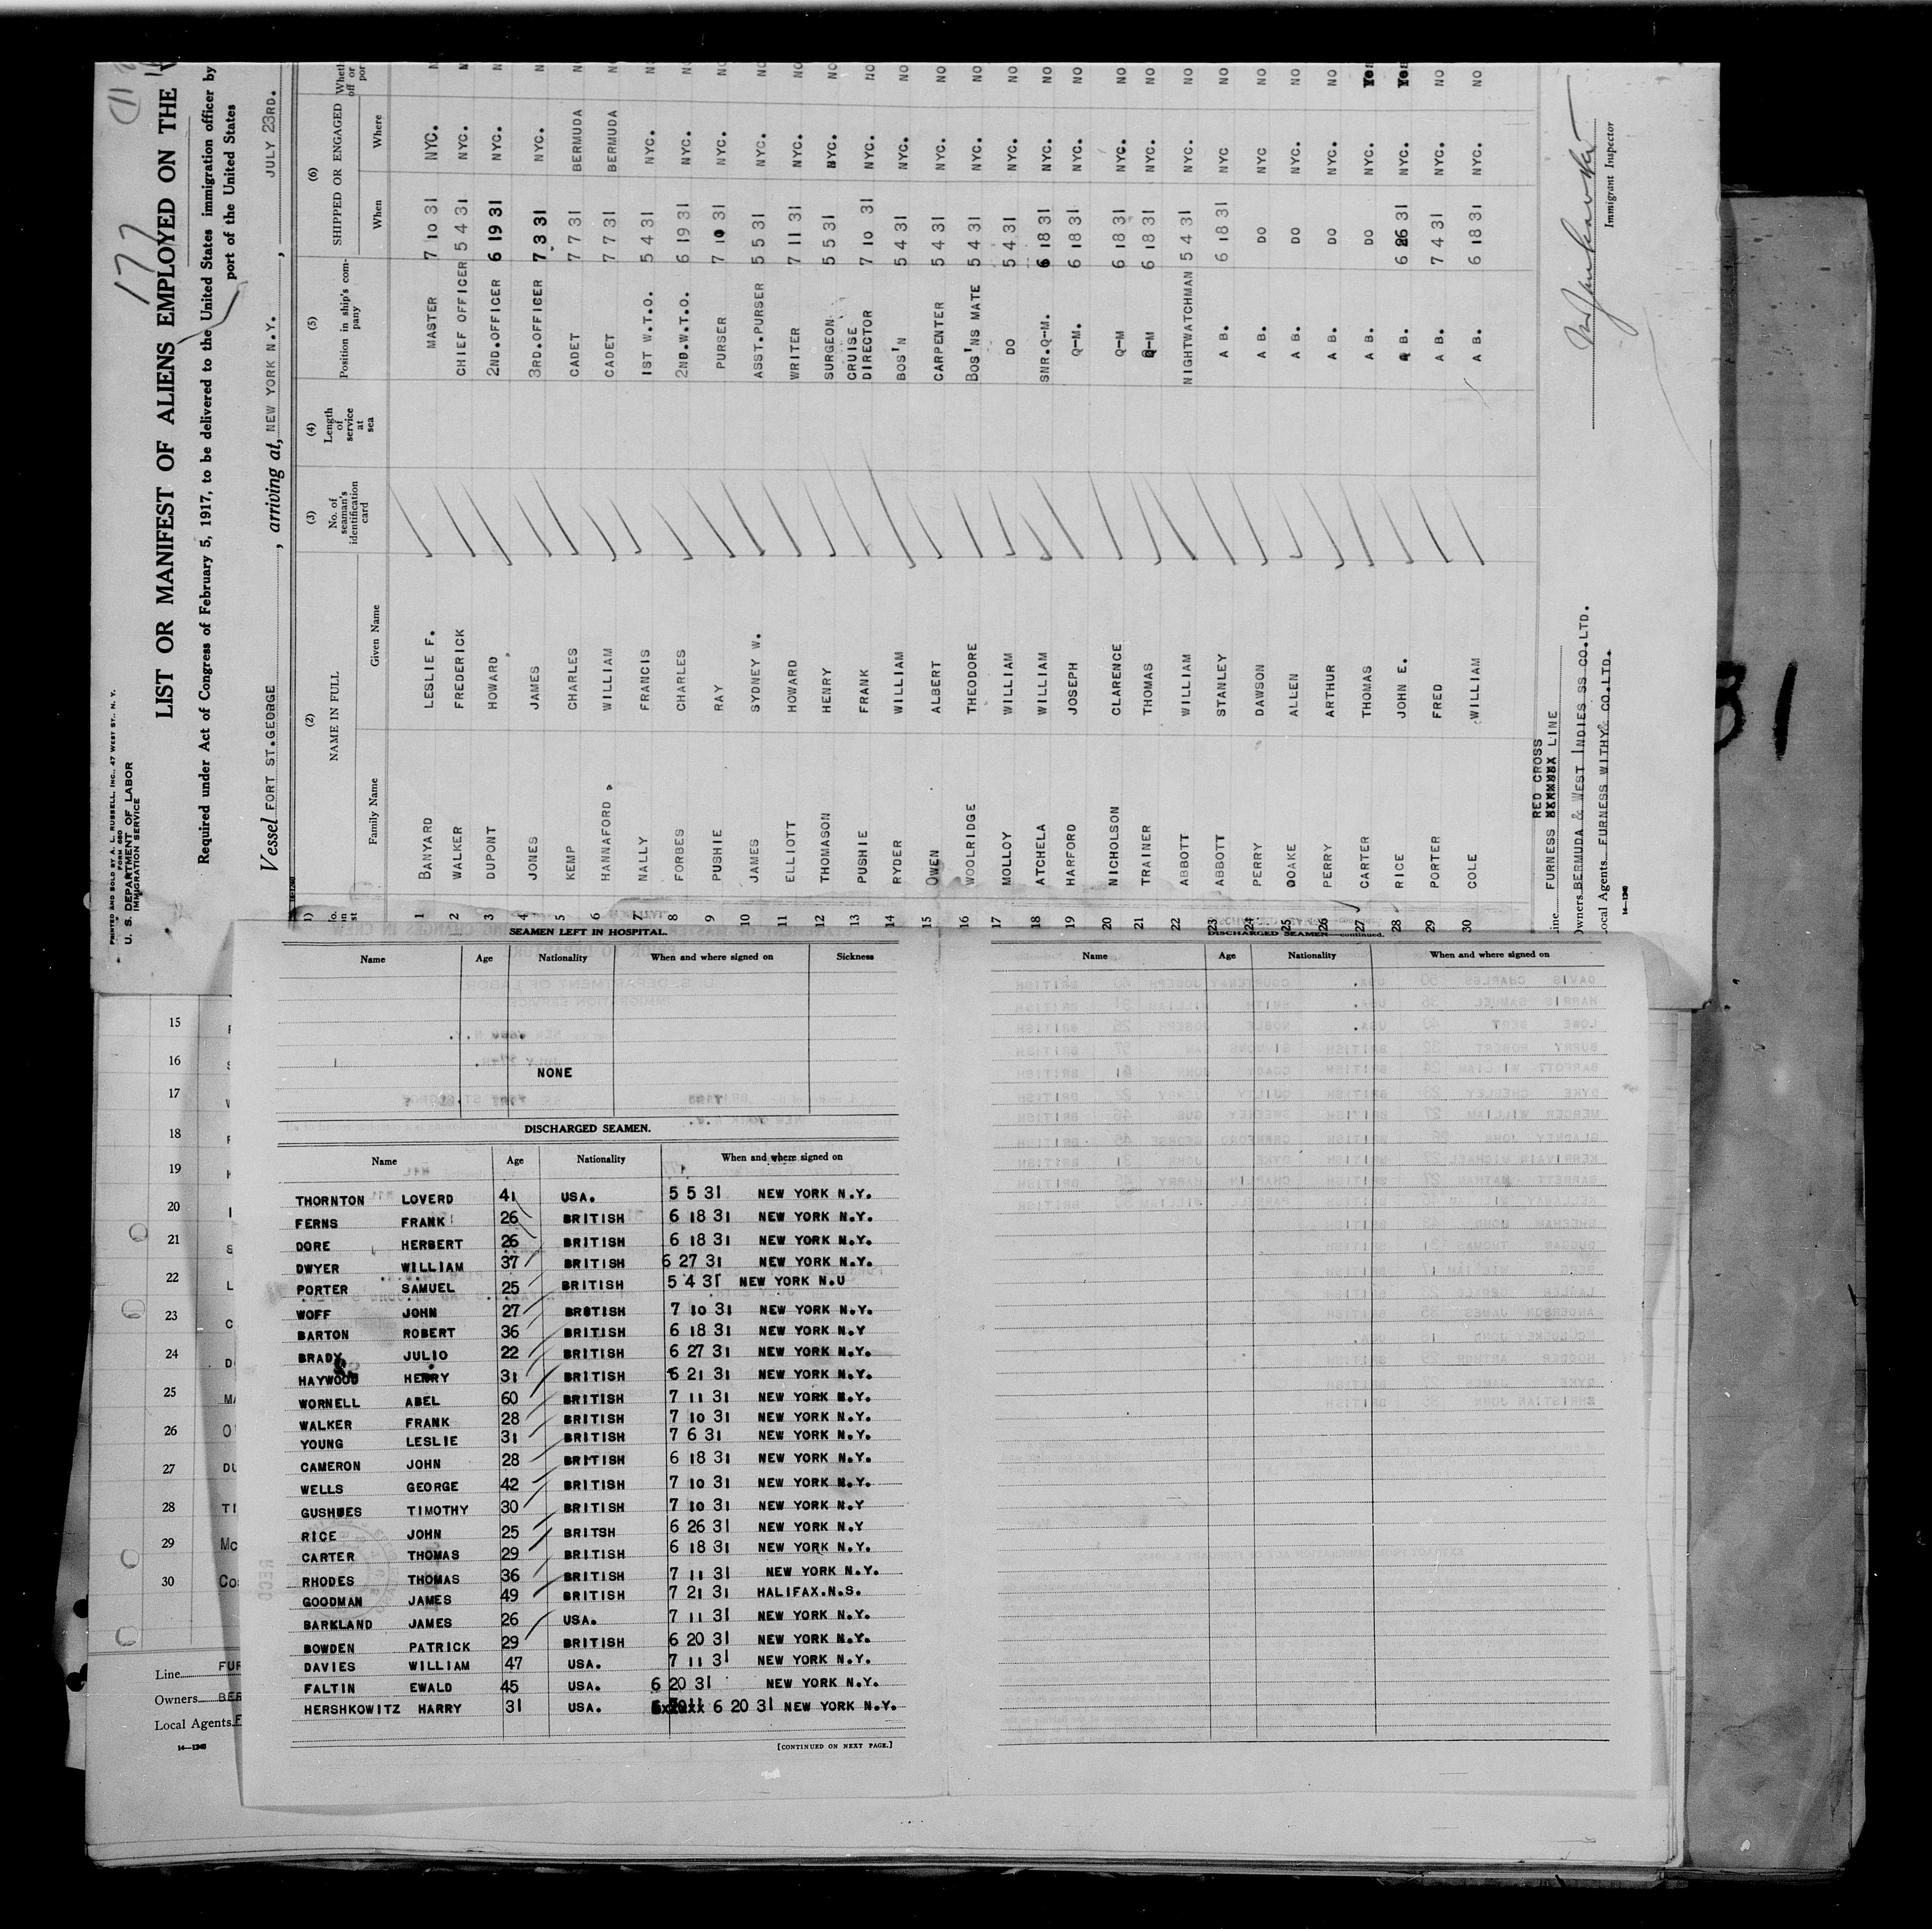 PRINTED AND SOLD BY A. L. RUSSELL, INC., 47 WEST ST., N. Y.
FORM 680
U. S. DEPARTMENT OF LABOR
IMMIGRATION SERVICE
177
LIST OR MANIFEST OF ALIENS EMPLOYED ON THE
Required under Act of Congress of February 5, 1917, to be delivered to the United States immigration officer by
port of the United States
Vessel FORT ST.GEORGE, arriving at, NEW YORK N.Y., JULY 23RD.
(2) (3) (4) (5) (6)
NAME IN FULL No. of seaman's identification card Length of service at sea Position in ship's company SHIPPED OR ENGAGED
Family Name Given Name When Where
1 BANYARD LESLIE F. MASTER 7 10 31 NYC.
2 WALKER FREDERICK CHIEF OFFICER 5 4 31 NYC.
3 DUPONT HOWARD 2ND.OFFICER 6 19 31 NYC.
4 JONES JAMES 3RD.OFFICER 7 3 31 NYC.
5 KEMP CHARLES CADET 7 7 31 BERMUDA
6 HANNAFORD WILLIAM CADET 7 7 31 BERMUDA
7 NALLY FRANCIS 1ST W.T.O. 5 4 31 NYC.
8 FORBES CHARLES 2ND.W.T.O. 6 19 31 NYC. NO
9 PUSHIE RAY PURSER 7 10 31 NYC. NO
10 JAMES SYDNEY W. ASST.PURSER 5 5 31 NYC. NO
11 ELLIOTT HOWARD WRITER 7 11 31 NYC. NO
12 THOMASON HENRY SURGEON 5 5 31 NYC. NO
13 PUSHIE FRANK CRUISE DIRECTOR 7 10 31 NYC. NO
14 RYDER WILLIAM BOS'N 5 4 31 NYC. NO
15 OWEN ALBERT CARPENTER 5 4 31 NYC. NO
16 WOOLRIDGE THEODORE BOS'NS MATE 5 4 31 NYC. NO
17 MOLLOY WILLIAM DO 5 4 31 NYC. NO
18 ATCHELA WILLIAM SNR.Q-M. 6 18 31 NYC. NO
19 HARFORD JOSEPH Q-M. 6 18 31 NYC. NO
20 NICHOLSON CLARENCE Q-M 6 18 31 NYC. NO
21 TRAINER THOMAS Q-M 6 18 31 NYC. NO
22 ABBOTT WILLIAM NIGHTWATCHMAN 5 4 31 NYC. NO
23 ABBOTT STANLEY A B. 6 18 31 NYC NO
24 PERRY DAWSON A B. DO NYC NO
25 DOAKE ALLEN A B. DO NYC. NO
26 PERRY ARTHUR A B. DO NYC. NO
27 CARTER THOMAS A B. DO NYC. Yes
28 RICE JOHN E. A B. 6 26 31 NYC. Yes
29 PORTER FRED A B. 7 4 31 NYC. NO
30 COLE WILLIAM A B. 6 18 31 NYC. NO
RED CROSS
FURNESS LINE
Owners BERMUDA & WEST INDIES SS CO.LTD.
Local Agents FURNESS WITHY& CO.LTD.
14—1240
Immigrant Inspector
31
SEAMEN LEFT IN HOSPITAL.
Name Age Nationality When and where signed on Sickness
NONE
DISCHARGED SEAMEN.
Name Age Nationality When and where signed on
THORNTON LOVERD 41 USA. 5 5 31 NEW YORK N.Y.
FERNS FRANK 26 BRITISH 6 18 31 NEW YORK N.Y.
DORE HERBERT 26 BRITISH 6 18 31 NEW YORK N.Y.
DWYER WILLIAM 37 BRITISH 6 27 31 NEW YORK N.Y.
PORTER SAMUEL 25 BRITISH 5 4 31 NEW YORK N.U
WOFF JOHN 27 BROTISH 7 10 31 NEW YORK N.Y.
BARTON ROBERT 36 BRITISH 6 18 31 NEW YORK N.Y
BRADY JULIO 22 BRITISH 6 27 31 NEW YORK N.Y.
HAYWOOD HENRY 31 BRITISH 6 21 31 NEW YORK N.Y.
WORNELL ABEL 60 BRITISH 7 11 31 NEW YORK N.Y.
WALKER FRANK 28 BRITISH 7 10 31 NEW YORK N.Y.
YOUNG LESLIE 31 BRITISH 7 6 31 NEW YORK N.Y.
CAMERON JOHN 28 BRITISH 6 18 31 NEW YORK N.Y.
WELLS GEORGE 42 BRITISH 7 10 31 NEW YORK N.Y.
GUSHUES TIMOTHY 30 BRITISH 7 10 31 NEW YORK N.Y
RICE JOHN 25 BRITSH 6 26 31 NEW YORK N.Y
CARTER THOMAS 29 BRITISH 6 18 31 NEW YORK N.Y.
RHODES THOMAS 36 BRITISH 7 11 31 NEW YORK N.Y.
GOODMAN JAMES 49 BRITISH 7 21 31 HALIFAX.N.S.
BARKLAND JAMES 26 USA. 7 11 31 NEW YORK N.Y.
BOWDEN PATRICK 29 BRITISH 6 20 31 NEW YORK N.Y.
DAVIES WILLIAM 47 USA. 7 11 31 NEW YORK N.Y.
FALTIN EWALD 45 USA. 6 20 31 NEW YORK N.Y.
HERSHKOWITZ HARRY 31 USA. 6 20 31 NEW YORK N.Y.
[CONTINUED ON NEXT PAGE.]
DISCHARGED SEAMEN—continued.
Name Age Nationality When and where signed on
15
16
17
18
19
20
21
22
23
24
25
26
27
28
29
30
Line
Owners
Local Agents
14—1240